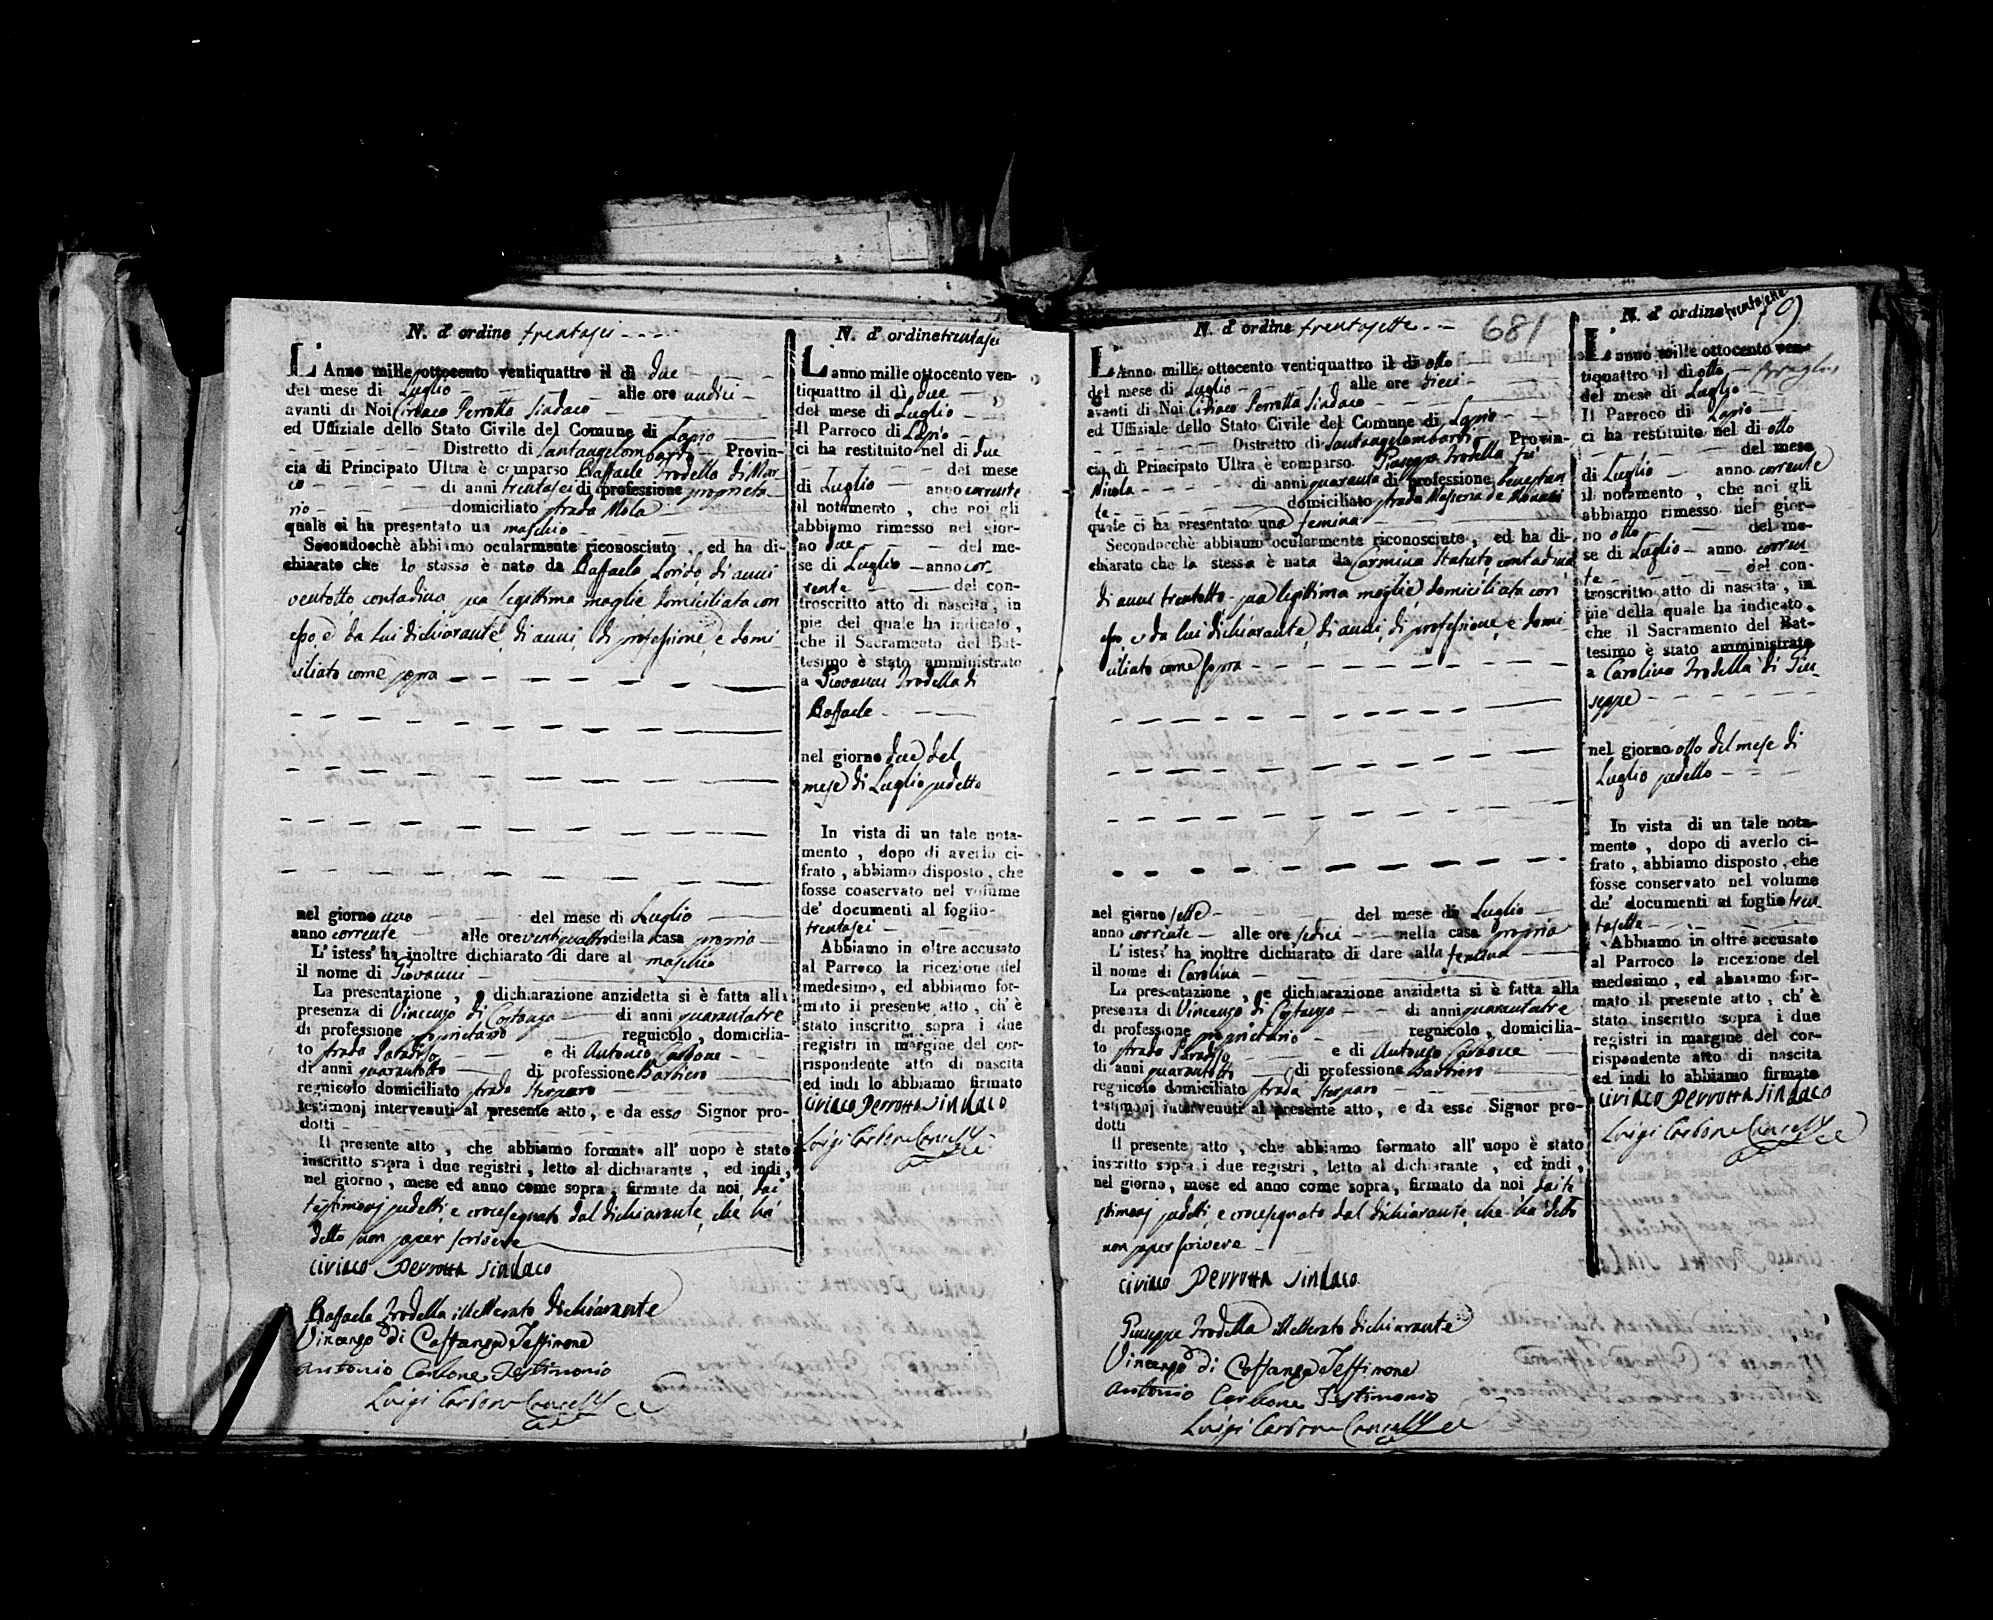 N. d' ordine trentasei
L' Anno mille ottocento ventiquattro il dì due
del mese di Luglio alle ore undici
avanti di Noi Ciriaco Perrotta Sindaco
ed Uffiziale dello Stato Civile del Comune di Lapio
Distretto di Santangelombardi Provin-
cia di Principato Ultra è comparso Raffaele Trodella di Mar
co di anni trentasei di professione proprieta
rio domiciliato strada Mola
quale ci ha presentato un maschio
Secondocchè abbiamo ocularmente riconosciuto, ed ha di-
chiarato che lo stesso è nato da Raffaela Lorido di anni
ventotto contadina sua legittima moglie domiciliata con
esso, e da lui dichiarante, di anni, di professione, e domi
ciliato come sopra
nel giorno uno del mese di Luglio
anno corrente alle ore ventiquattro della casa propria
L' istess' ha inoltre dichiarato di dare al maschio
il nome di Giovanni
La presentazione, e dichiarazione anzidetta si è fatta alla
presenza di Vincenzo di Costanzo di anni quarantatre
di professione proprietario regnicolo, domicilia-
to strada Paradiso e di Antonio Carbone
di anni quarantotto di professione Barbiero
regnicolo domiciliato strada
testimonj intervenuti al presente atto, e da esso Signor pro-
dotti
Il presente atto, che abbiamo formato all' uopo è stato
inscritto sopra i due registri, letto al dichiarante, ed indi,
nel giorno, mese ed anno come sopra, firmato da noi, dai
testimonj sudetti, e crocesegnato dal dichiarante, che ha
detto non saper scrivere
Ciriaco Perrotta Sindaco
Raffaele Trodella illetterato dichiarante
Vincenzo di Costanzo Testimone
Antonio Carbone Testimonio
Luigi Carbone Cancell
N. d' ordine trentasei
L' anno mille ottocento ven-
tiquattro il dì due
del mese di Luglio
Il Parroco di Lapio
ci ha restituito nel dì due
del mese
di Luglio anno corrente
il notamento, che noi gli
abbiamo rimesso nel gior-
no due del me-
se di Luglio anno cor
rente del con-
troscritto atto di nascita, in
pie del quale ha indicato,
che il Sacramento del Bat-
tesimo è stato amministrato
a Giovanni Trodella di
Raffaele
nel giorno due del
mese di Luglio sudetto
In vista di un tale nota-
mento, dopo di averlo ci-
frato, abbiamo disposto, che
fosse conservato nel volume
de' documenti al foglio
trentasei
Abbiamo in oltre accusato
al Parroco la ricezione del
medesimo, ed abbiamo for-
mato il presente atto, ch' è
stato inscritto sopra i due
registri in margine del cor-
rispondente atto di nascita
ed indi lo abbiamo firmato
Ciriaco Perrotta Sindaco
Luigi Carbone Cancell
N. d' ordine trentasette
681
L' Anno mille ottocento ventiquattro il dì otto
del mese di Luglio alle ore dieci
avanti di Noi Ciriaco Perrotta Sindaco
ed Uffiziale dello Stato Civile del Comune di Lapio
Distretto di Santangelombardi Provin-
cia di Principato Ultra è comparso Giuseppe Trodella fu
Nicola di anni quaranta di professione benestan
te domiciliato strada Masseria de
quale ci ha presentato una femina
Secondocchè abbiamo ocularmente riconosciuto, ed ha di-
chiarato che la stessa è nata da Carmina Statuto contadina
di anni trentotto sua legittima moglie domiciliata con
esso, e da lui dichiarante, di anni, di professione, e domi
ciliato come sopra
nel giorno sette del mese di Luglio
anno corrente alle ore sedici nella casa propria
L' istess' ha inoltre dichiarato di dare alla femina
il nome di Carolina
La presentazione, e dichiarazione anzidetta si è fatta alla
presenza di Vincenzo di Costanzo di anni quarantatre
di professione proprietario regnicolo, domicilia-
to strada Paradiso e di Antonio Carbone
di anni quarantotto di professione Barbiero
regnicolo domiciliato strada
testimonj intervenuti al presente atto, e da esso Signor pro-
dotti
Il presente atto, che abbiamo formato all' uopo è stato
inscritto sopra i due registri, letto al dichiarante, ed indi,
nel giorno, mese ed anno come sopra, firmato da noi dai te
stimonj sudetti, e crocesegnato dal dichiarante, che ha detto
non saper scrivere
Ciriaco Perrotta Sindaco
Giuseppe Trodella illetterato dichiarante
Vincenzo di Costanzo Testimone
Antonio Carbone Testimonio
Luigi Carbone Cancell
N. d' ordine trentasette
L' anno mille ottocento ven-
tiquattro il dì otto
del mese di Luglio
Il Parroco di Lapio
ci ha restituito nel dì otto
del mese
di Luglio anno corrente
il notamento, che noi gli
abbiamo rimesso nel gior-
no otto del me-
se di Luglio anno corren
te del con-
troscritto atto di nascita, in
pie della quale ha indicato,
che il Sacramento del Bat-
tesimo è stato amministrato
a Carolina Trodella di Giu
seppe
nel giorno otto del mese di
Luglio sudetto
In vista di un tale nota-
mento, dopo di averlo ci-
frato, abbiamo disposto, che
fosse conservato nel volume
de' documenti al foglio tren
tasette
Abbiamo in oltre accusato
al Parroco la ricezione del
medesimo, ed abbiamo for-
mato il presente atto, ch' è
stato inscritto sopra i due
registri in margine del cor-
rispondente atto di nascita
ed indi lo abbiamo firmato
Ciriaco Perrotta Sindaco
Luigi Carbone Cancell